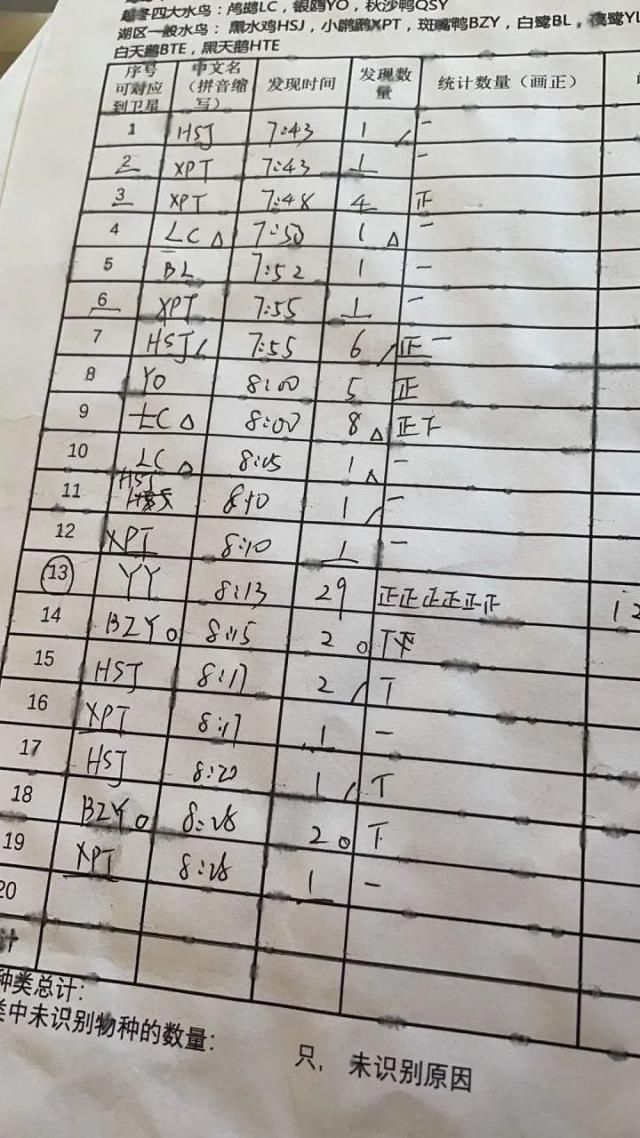 越冬四大水鸟：鸬鹚LC，银鸥YO，秋沙鸭QSY
湖区一般水鸟：黑水鸡HSJ，小䴙䴘XPT，斑嘴鸭BZY，白鹭BL，夜鹭YL
白天鹅BTE，黑天鹅HTE
序号可对应到卫星 中文名（拼音缩写） 发现时间 发现数量 统计数量（画正）
1 HSJ 7:43 1 一
2 XPT 7:43 1 一
3 XPT 7:48 4 正
4 LC △ 7:50 1 △ 一
5 BL 7:52 1 一
6 XPT 7:55 1 一
7 HSJ 7:55 6 正一
8 YO 8:00 5 正
9 LC △ 8:00 8 △ 正下
10 LC △ 8:05 1 △ 一
11 HSJ 8:10 1 一
12 XPT 8:10 1 一
13 YY 8:13 29 正正正正正正 12
14 BZY 8:15 2 T
15 HSJ 8:17 2 T
16 XPT 8:17 1 一
17 HSJ 8:20 1 T
18 BZY 8:28 2 T
19 XPT 8:28 1 一
20
计
种类总计：
类中未识别物种的数量： 只， 未识别原因